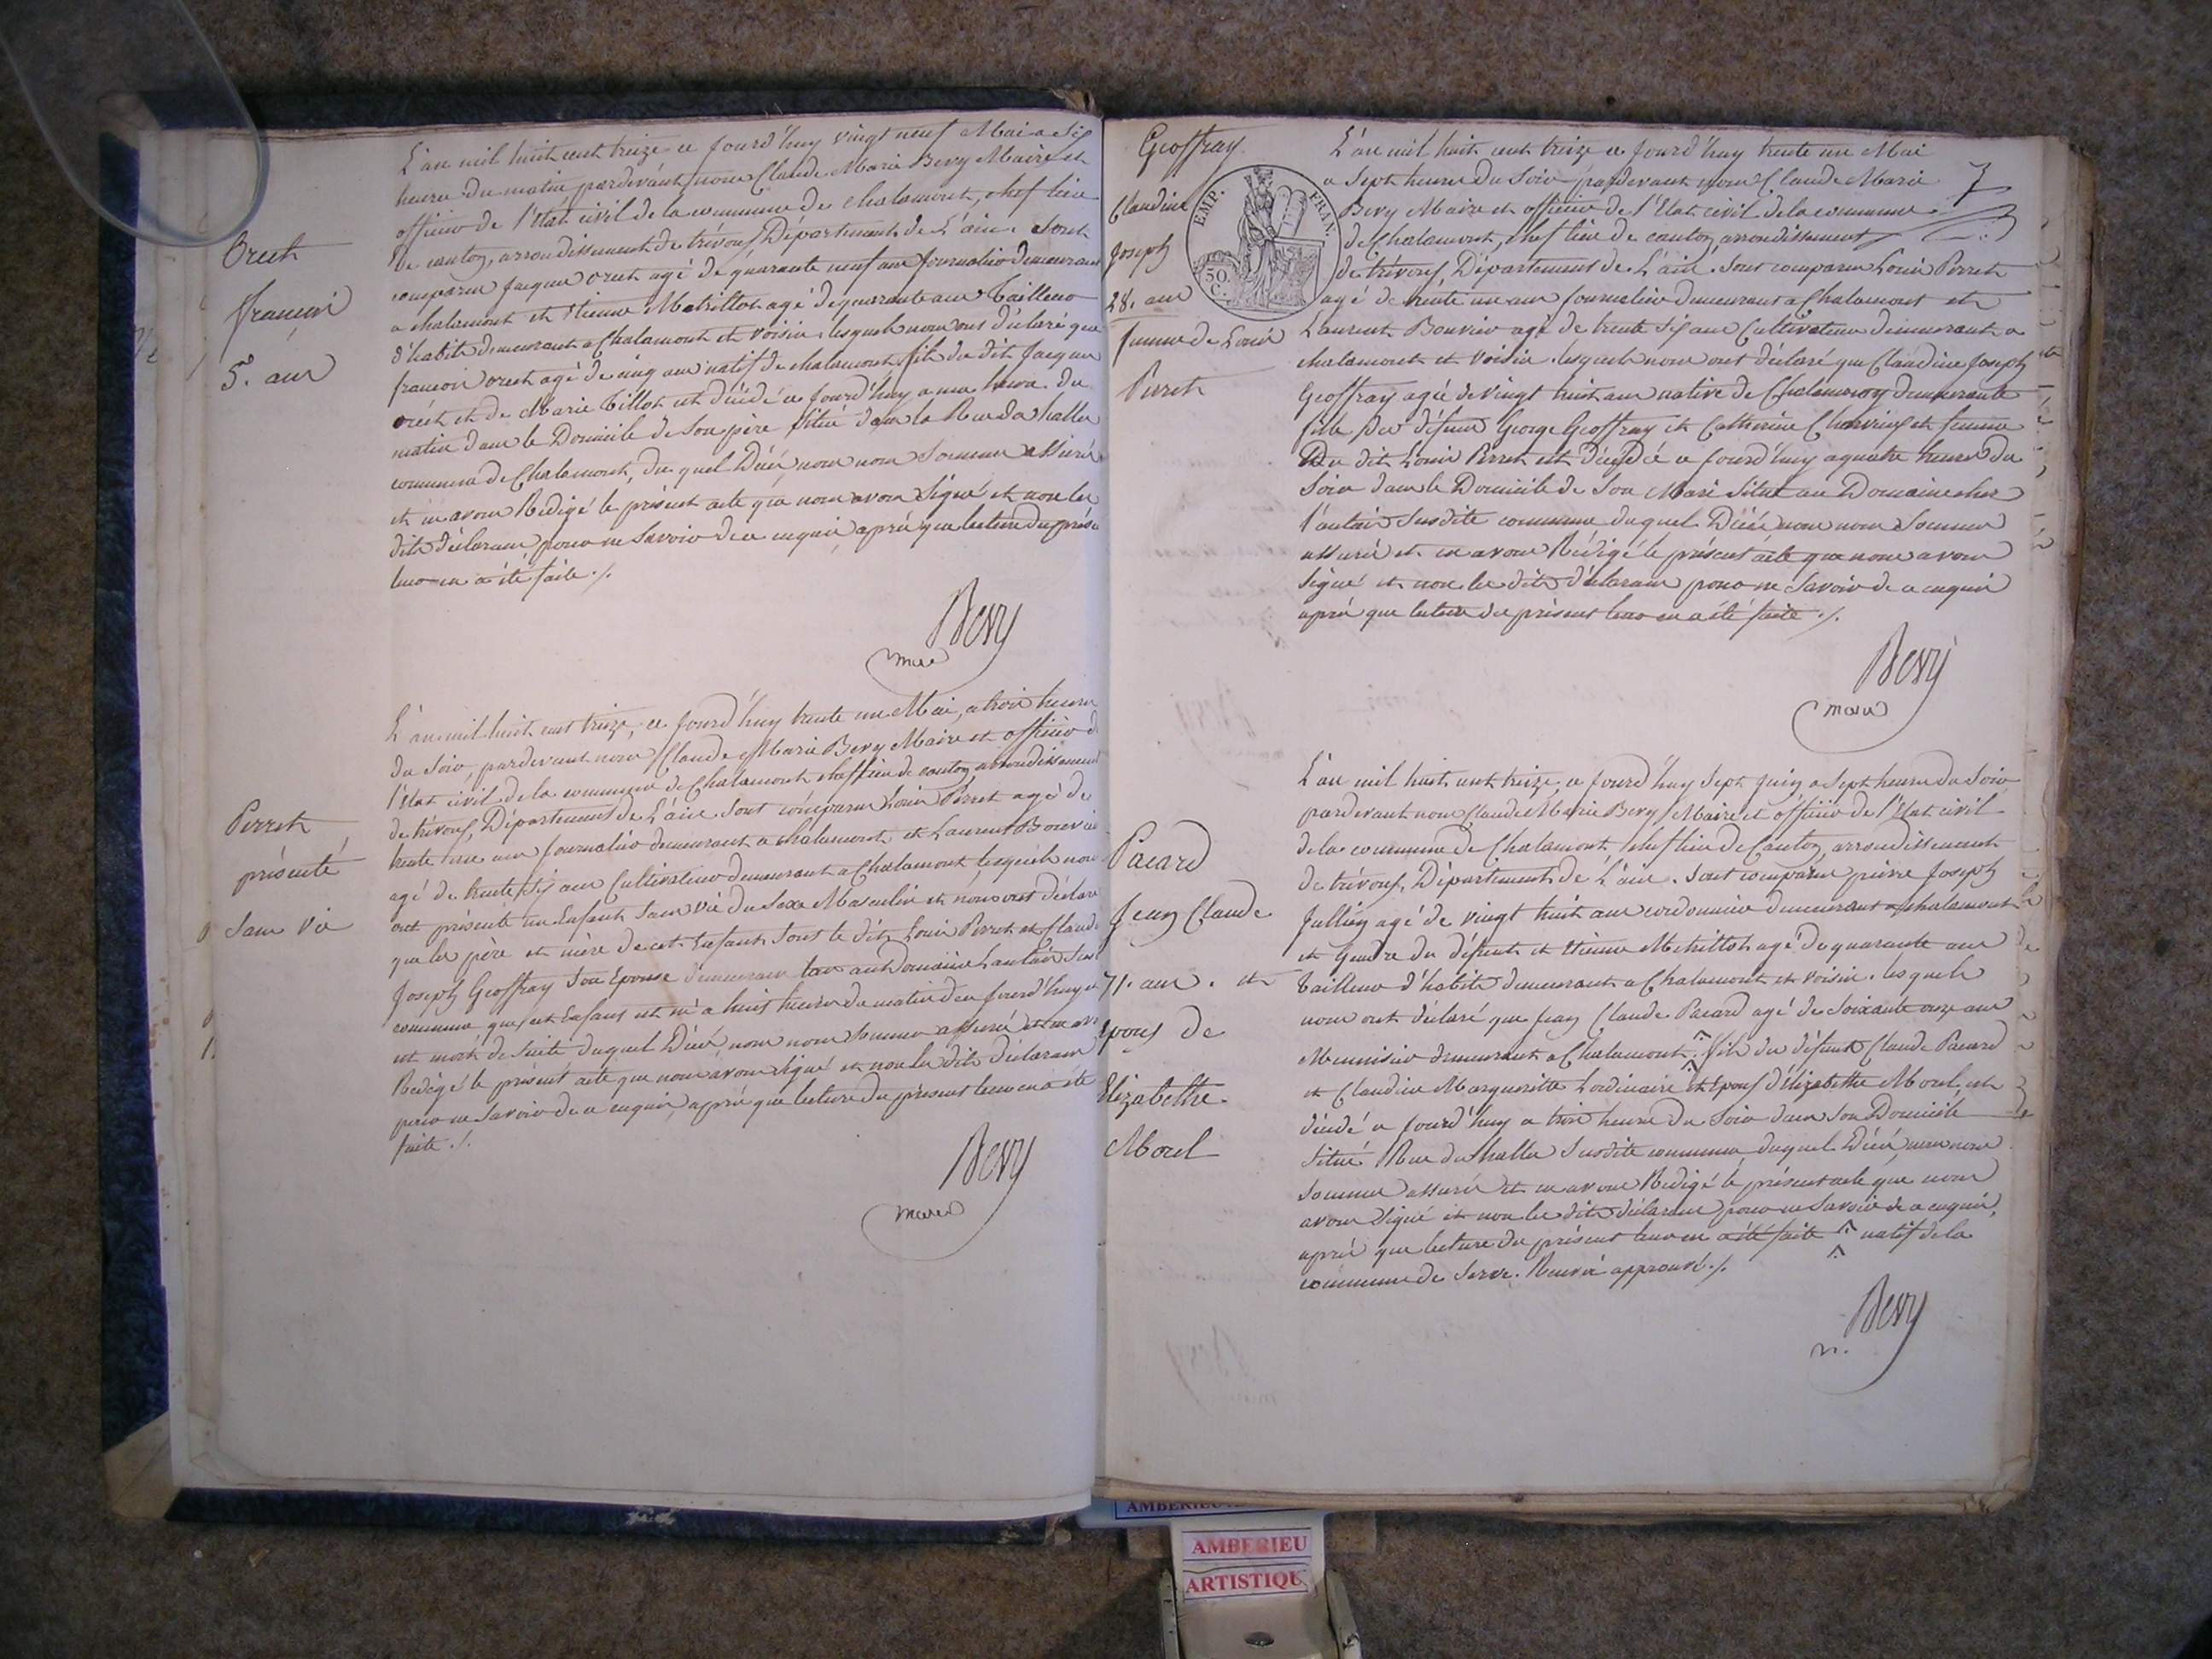 Orcet
françois
5. ans
L'an mil huit cent treize ce jourd'huy vingt neuf Mai a six
heures du matin pardevant nous Claude Marie Bevy Maire et
officier de l'état civil de la commune de chalamont, chef lieu
de canton, arrondissement de trévoux Département de L'ain. Sont
comparus jacques orcet agé de quarante neuf ans journalier demeurant
a chalamont et étienne Metrillot agé de quarante ans Tailleur
d'habits demeurant a Chalamont et voisin. lesquels nous ont déclaré que
françois orcet agé de cinq ans natif de chalamont fils du dit Jacques
orcet et de Marie Tillot est décédé ce jourd'huy a heure du
matin dans le Domicile de Son père Situé dans la Rue des halles
commune de Chalamont, du quel Décès nous nous Sommes assurés
et en avons Rédigé le présent acte que nous avons Signé et non les
dits déclarans pour ne Savoir de ce enquis après que lecture du présent
leur en a été faite ./.
Bevy
maire
Perret
présenté
Sans vie
L'an mil huit cent treize, ce jourd'huy trente un Mai, a trois heures
du Soir, pardevant nous Claude Marie Bevy Maire et officier de
l'état civil de la commune de Chalamont chef lieu de canton, arrondissement
de trévoux, Département de L'ain Sont comparus Louis Perret agé de
trente un ans journalier demeurant a chalamont et Laurent Bouvier
agé de trente six ans Cultivateur demeurant a Chalamont, lesquels nous
ont présenté un Enfant Sans vie du Sexe Masculin et nous ont déclaré
que les père et mère de cet Enfant Sont le dit Louis Perret et Claudine
Joseph Geoffray Son Epouse demeurans au Domaine Lautair Sus
commune que cet Enfant est né a huit heures du matin de ce jourd'huy et
est mort de Suite duquel Décès nous nous Sommes assurés et en avons
Rédigé le présent acte que nous avons Signé et non les dits déclarans
pour ne Savoir de ce enquis, après que lecture du présent leur en a été
faite ./.
Bevy
maire
Geoffray
Claudine
Joseph
28. ans
femme de Louis
Perret
EMP. FRAN.
50 C.
7
L'an mil huit cent treize ce jourd'huy trente un Mai
a Sept heures du Soir pardevant nous Claude Marie
Bevy Maire et officier de l'Etat civil de la commune
de Chalamont, chef lieu de canton, arrondissement
de trévoux, Département de L'ain. Sont comparus Louis Perret
agé de trente un ans journalier demeurant a Chalamont et
Laurent Bouvier agé de trente six ans Cultivateur demeurant a
chalamont et voisin. lesquels nous ont déclaré que Claudine Joseph
Geoffray agée de vingt huit ans native de Chalamont y demeurante
fille du défunt George Geoffray et Catherine et femme
Du dit Louis Perret est décédée ce jourd'huy a quatre heures du
Soir dans le Domicile de Son Mari Situé au Domaine chez
l'autair Susdite commune duquel Décès nous nous Sommes
assurés et en avons Rédigé le présent acte que nous avons
Signé et non les dits déclarans pour ne Savoir de ce enquis
après que lecture du présent leur en a été faite ./.
Bevy
maire
Pacard
Jean Claude
71. ans. et
Epoux de
Elizabethe
Morel
L'an mil huit cent treize, ce jourd'huy Sept juin a Sept heures du Soir
pardevant nous Claude Marie Bevy Maire et officier de l'Etat civil
de la commune de Chalamont, chef lieu de Canton, arrondissement
de trévoux, Département de L'ain. Sont comparus pierre Joseph
Jullien agé de vingt huit ans cordonnier demeurant a chalamont
et Gendre du défunt et étienne Metrillot agé de quarante ans
Tailleur d'habits demeurant a Chalamont et voisin. lesquels
nous ont déclaré que jean Claude Pacard agé de Soixante onze ans
Menuisier demeurant a Chalamont fils du défunt Claude Pacard
et Claudine Margueritte Lordinaire et Epoux d'élizabethe Morel est
décédé ce jourd'huy a trois heures du Soir dans Son Domicile
Situé Rue des halles Susdite commune, duquel Décès nous nous
Sommes assurés et en avons Rédigé le présent acte que nous
avons Signé et non les dits déclarans pour ne Savoir de ce enquis,
après que lecture du présent leur en a été faite natif de la
commune de Serve. Renvoi approuvé ./.
Bevy
m.
AMBERIEU
ARTISTIQU